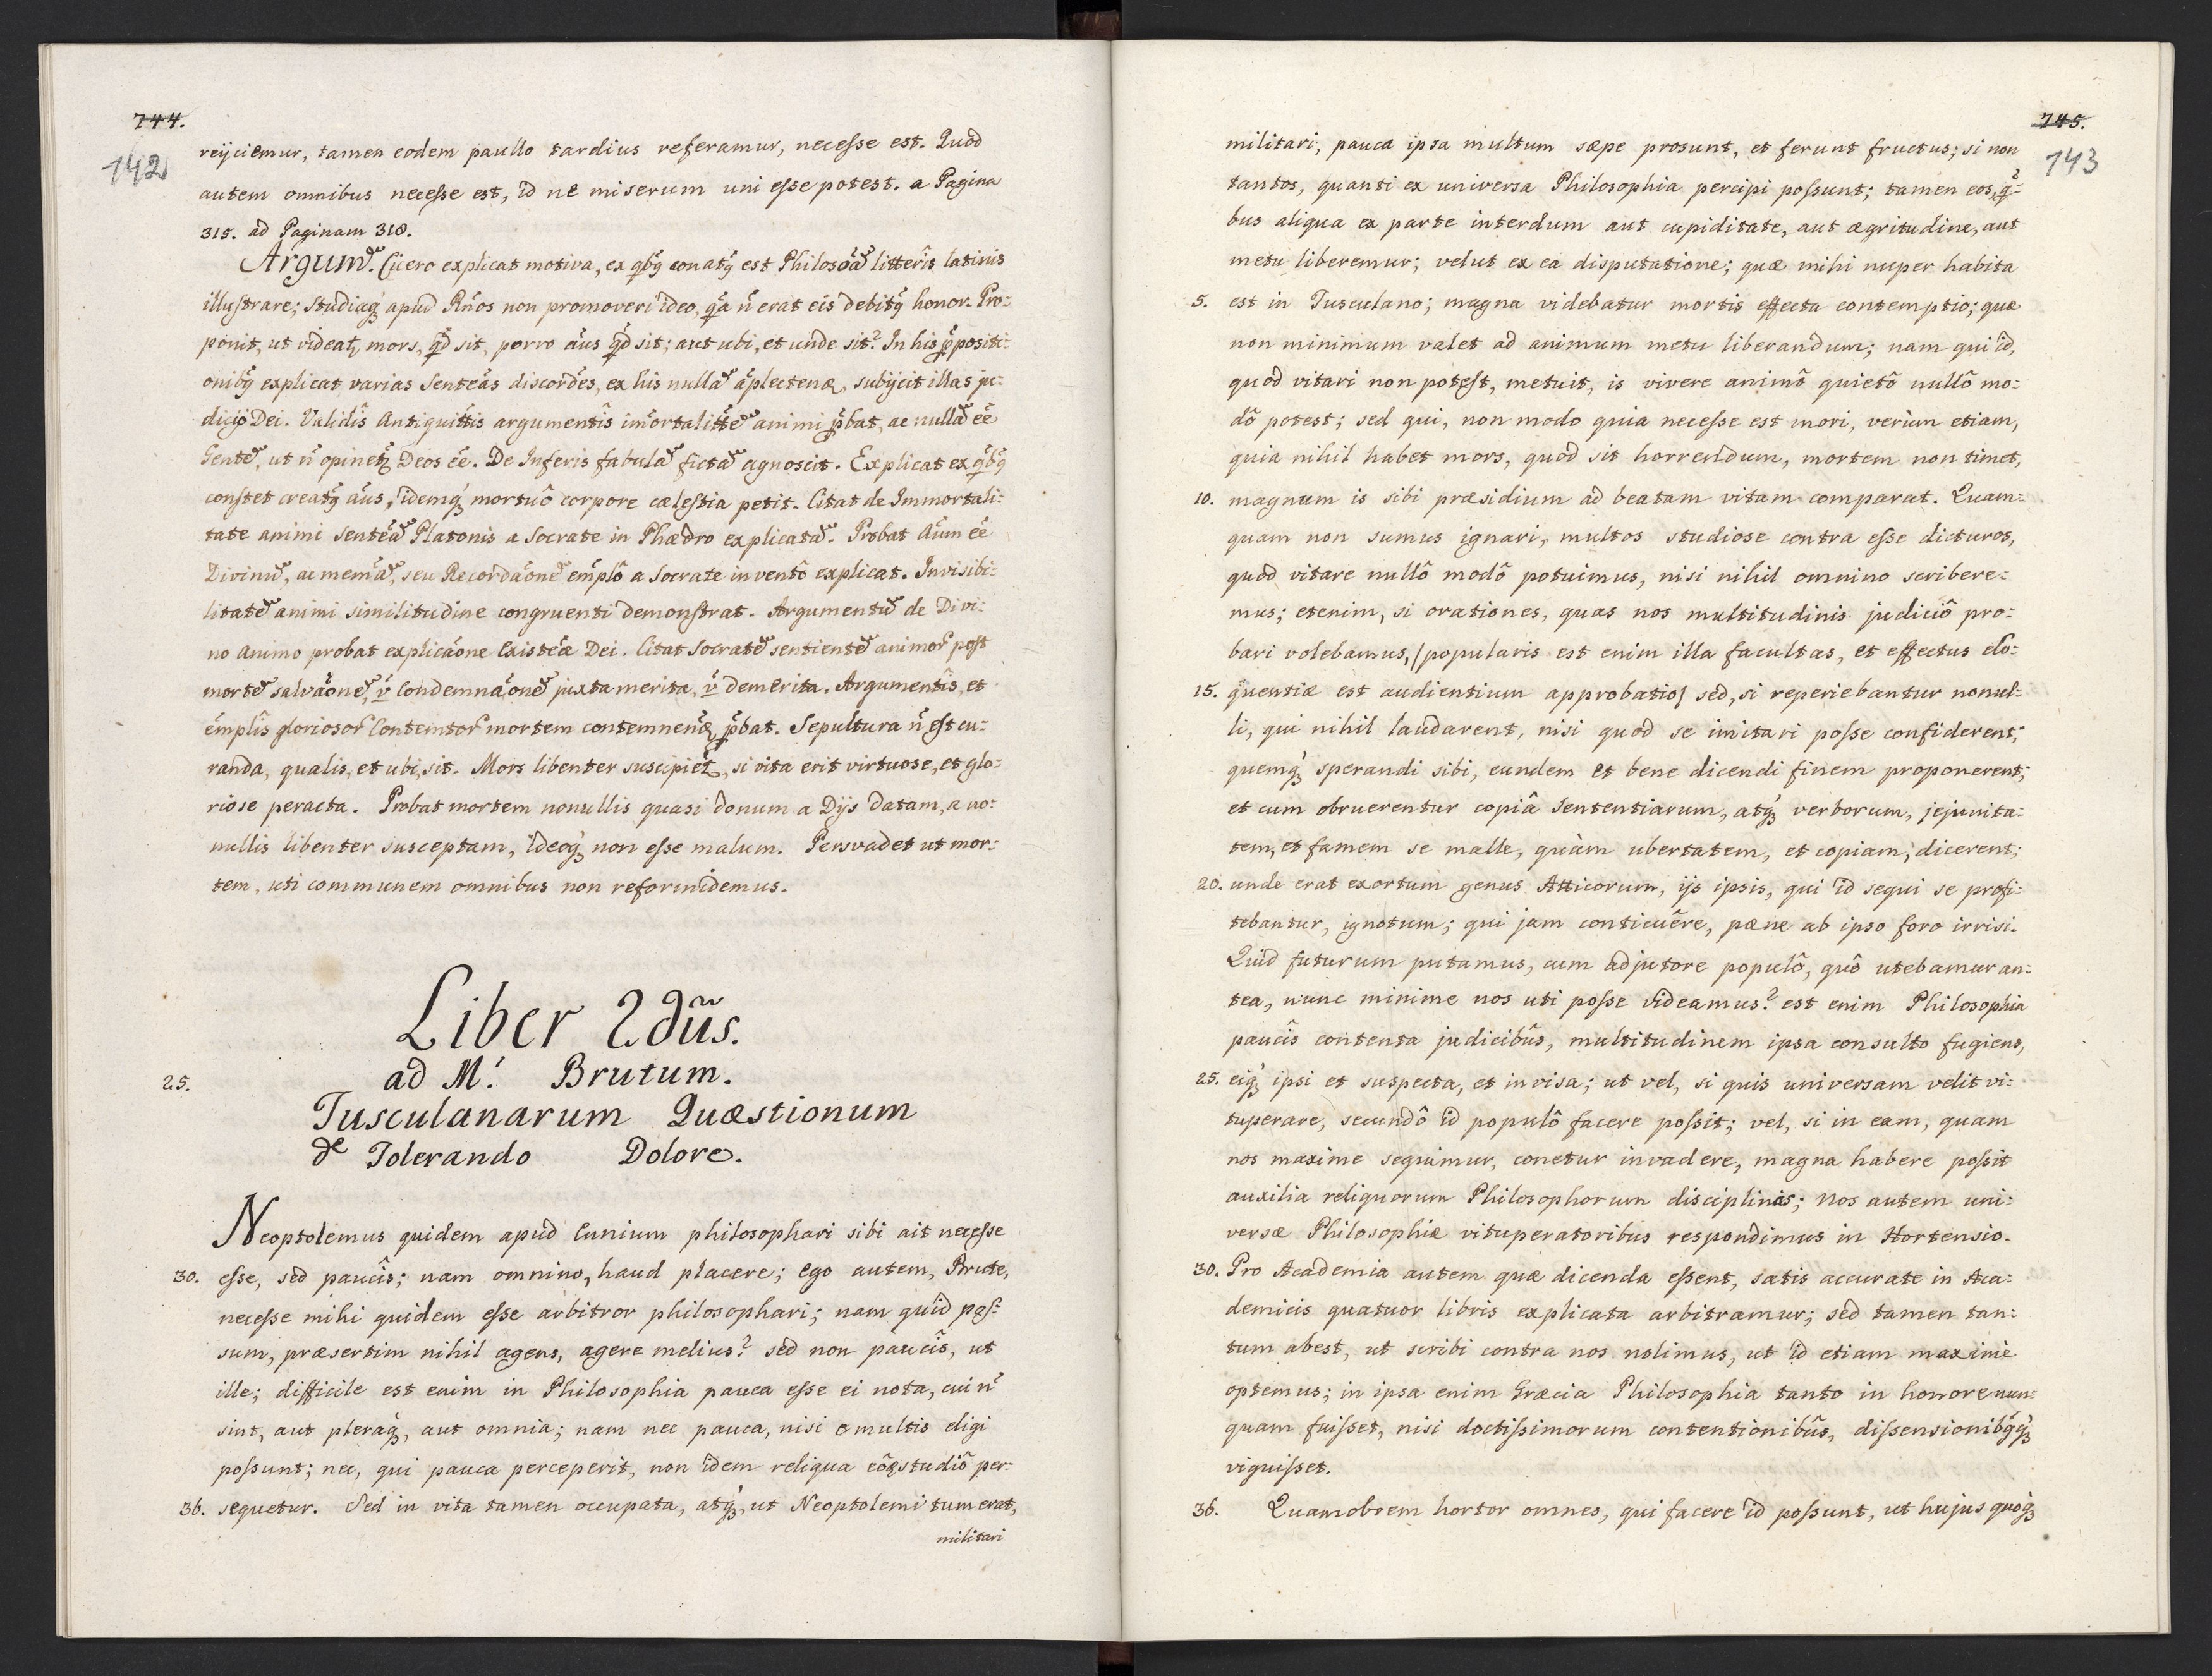 744.
142
reijciemur, tamen eodem paullo tardius referamur, necesse est. Quod
autem omnibus necesse est, id ne miserum uni esse potest. a Pagina
315. ad Paginam 318.
Cicero explicat motiva, ex conatq̃ est litteris latinis
illustrare; Studiaq́ꝫ apud non promoveri ideo, q̃a ñ erat eis debitq̃ honor. Pro:
ponit, ut mors, q̃d sit, porro a͠us q̃d sit; aut ubi, et unde sit? In his
explicat varias Sente͠as discordes, ex his subijcit illas ju:
dicio Dei. Validis argumentis animi p̃bat, ac e͠e
ut ñ Deos e͠e. De Inferis agnoscit. Explicat ex
constet a͠us, idemq́ꝫ mortuô corpore cælestia petit. Citat de Immortali:
tate animi Platonis a Socrate in Phædro Probat e͠e
seu a Socrate inventô explicat. Invisibi:
animi similitudine congruenti demonstrat. de Divi:
no animo probat Dei. Citat post
juxta merita, demerita. Argumentis, et
mortem p̃bat. Sepultura ñ est cu:
randa, qualis, et ubi, sit. Mors libenter si vita erit virtuose, et glo:
riose peracta. Probat mortem nonullis quasi donum a Dijs datam, a no:
nullis libenter susceptam, ideoq́ꝫ non esse malum. Persvadet ut mor:
tem, uti communem omnibus non reformidemus.
Liber 2dũs.
25. ad M. Brutum.
Tusculanarum Quæstionum
de Tolerando Dolore.
Neoptolemus quidem apud Ennium philosophari sibi ait necesse
30. esse, sed paucîs; nam omnino, haud placere; Ego autem, Brute,
necesse mihi quidem esse arbitror philosophari; nam quid pos:
sum, præsertim nihil agens, agere melius? sed non paucîs, ut
ille; difficile est enim in Philosophia pauca esse ei nota, cui ñ
sint, aut pleraq́ꝫ, aut omnia; nam nec pauca, nisi e multis eligi
possunt; nec, qui pauca perceperit, non idem reliqua eôdẽ studiô per:
36. sequetur. Sed in vita tamen occupata, atq́ꝫ, ut Neoptolemi tum erat,
militari
745.
143
militari, pauca ipsa multum sæpe prosunt, et ferunt fructus; si non
tantos, quanti ex universa Philosophia percipi possunt; tamen eos, q̃:
bus aliqua ex parte interdum aut cupiditate, aut ægritudine, aut
metu liberemur; velut ex ea disputatione; quæ mihi nuper habita
5. est in Tusculano; magna videbatur mortis effecta contemptio; quæ
non minimum valet ad animum metu liberandum; nam qui id,
quod vitari non potest, metuit, is vivere animô quietô nullô mo:
dô potest; sed qui, non modo quia necesse est mori, verùm etiam,
quia nihil habet mors, quod sit horrendum, mortem non timet,
10. magnum is sibi præsidium ad beatam vitam comparat. Quam:
quam non sumus ignari, multos studiose contra esse dicturos,
quod vitare nullô modô potuimus, nisi nihil omnino scribere:
mus; etenim, si orationes, quas nos multitudinis judiciô pro:
bari volebamus, /popularis est enim illa facultas, et effectus elo:
15. quentiæ est audientium approbatio/ sed, si reperiebantur nonul:
li, qui nihil laudarent, nisi quod se imitari posse confiderent;
quemq́ꝫ sperandi sibi, eundem et bene dicendi finem proponerent;
et cum obruerentur copiâ sententiarum, atq́ꝫ verborum, jejunita:
tem, et famem se malle, quàm ubertatem, et copiam, dicerent;
20. unde erat exortum genus Atticorum, ijs ipsis, qui id sequi se profi:
tebantur, ignotum; qui jam conticuêre, pæne ab ipso foro irrisi.
Quid futurum putamus, cum adjutore populô, quô utebamur an:
tea, nunc minime nos uti posse videamus? est enim Philosophia
paucîs contenta judicibûs, multitudinem ipsa consulto fugiens,
25. eiq́ꝫ ipsi et suspecta, et invisa; ut vel, si quis universam velit vi:
tuperare, secundô id populô facere possit; vel, si in eam, quam
nos maxime sequimur, conetur invadere, magna habere possit
auxilia reliquorum Philosophorum disciplinis; Nos autem uni:
versæ Philosophiæ vituperatoribus respondimus in Hortensio.
30. Pro Academia autem quæ dicenda essent, satis accurate in Aca:
demicis quatuor libris explicata arbitramur; sed tamen tan:
tum abest, ut scribi contra nos nolimus, ut id etiam maxime
optemus; in ipsa enim Græcia Philosophia tanto in honore nun:
quam fuisset, nisi doctissimorum contentionibûs, dissensionibq̃q́ꝫ
viguisset.
36. Quamobrem hortor omnes, qui facere id possunt, ut hujus quoq́ꝫ